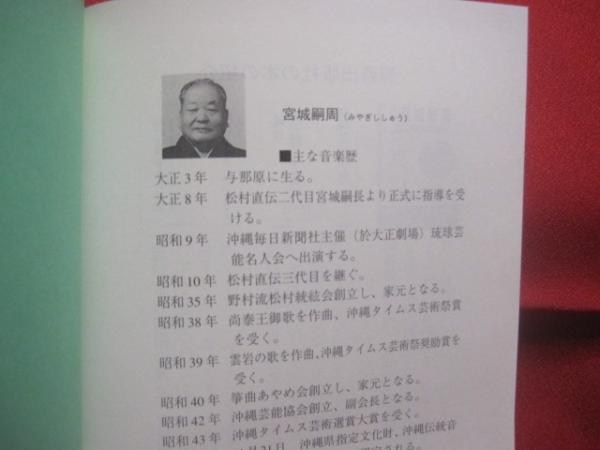 宮城嗣周(みやぎししゅう)
■主な音楽歴
大正3年 与那原に生る。
大正8年 松村直伝二代目宮城嗣長より正式に指導を受
ける。
昭和9年 沖縄毎日新聞社主催(於大正劇場)琉球芸
能名人会へ出演する。
昭和10年 松村直伝三代目を継ぐ。
昭和35年 野村流松村統絃会創立し、家元となる。
昭和38年 尚泰王御歌を作曲、沖縄タイムス芸術祭賞
を受く。
昭和39年 雲岩の歌を作曲、沖縄タイムス芸術祭奨励賞を
受く。
昭和40年 箏曲あやめ会創立し、家元となる。
昭和42年 沖縄芸能協会創立、副会長となる。
昭和43年 沖縄タイムス芸術選賞大賞を受く。
月21日 沖縄県指定文化財、沖縄伝統音
される。